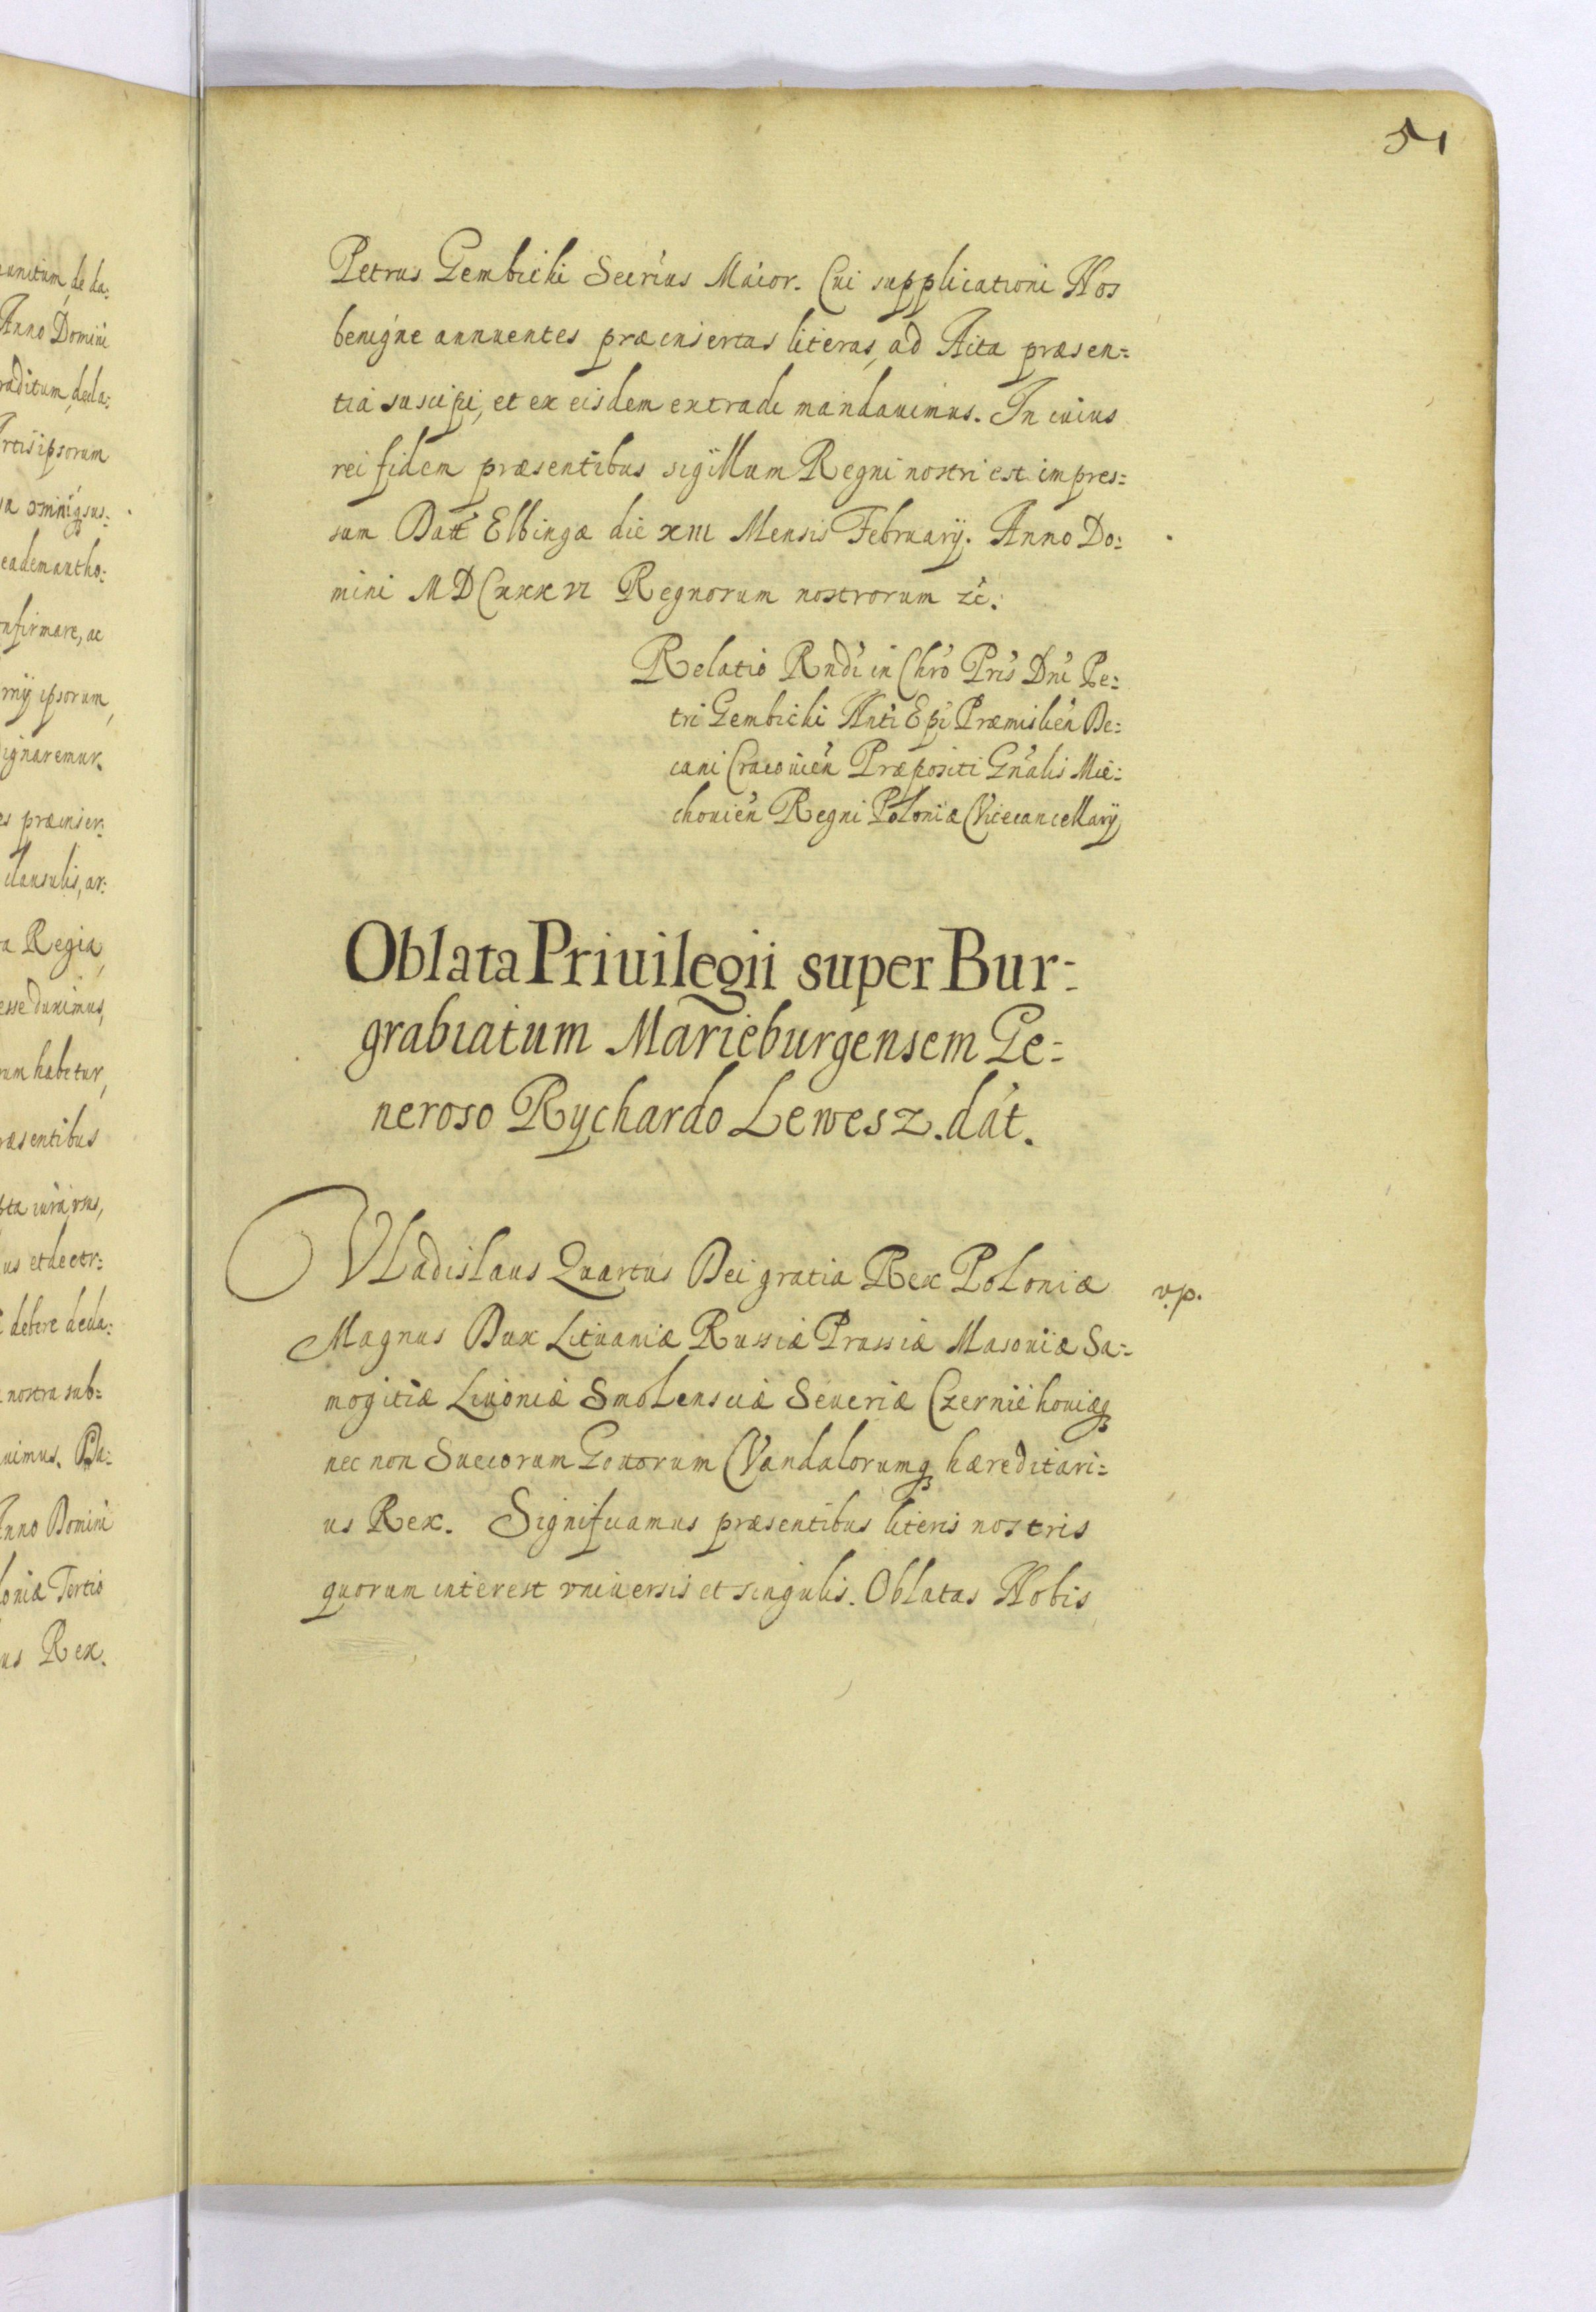 unitum, de da:
Anno Domini
raditum, decla:
rtis ipsorum
omniq sus:
eadem autho:
nfirmare, ac
mij ipsorum,
ignaremur.
es præinser:
clausulis, ar:
a Regia,
esse duximus,
um habetur,
ræsentibus
ta iura, vsus,
us et decer:
debere decla:
nostra sub:
uimus. Da:
Anno Domini
loniæ Tertio
us Rex.
51
Petrus Gembicki Secrius Maior. Cui supplicationi Nos
benigne annuentes præinsertas literas, ad Acta præsen=
tia suscipi, et ex eisdem extradi mandauimus. In cuius
rei fidem præsentibus sigillum Regni nostri est impres=
sum Datt Elbingæ die XIII Mensis February. Anno Do:
mini MDCXXXVI Regnorum nostrorum zc.
Relatio Rndi in Chro Pris Dni Pe:
tri Gembicki Nnti Epi Præmislien De:
cani Cracouien Præpositi Gnalis Mie:
chouien Regni Poloniæ Vicecancellarij
Oblata Priuilegii super Bur:
grabiatum Marieburgensem Ge:
neroso Rychardo Lewesz. dat.
VLadislaus Quartus Dei gratia Rex Poloniæ
v.p.
Magnus Dux Lituaniæ Russiæ Prussiæ Masouiæ Sa=
mogitiæ Liuoniæ Smolensciæ Seueriæ Czerniehouiæq
nec non Suecorum Gottorum Vandalorumq hæreditari=
us Rex. Significamus præsentibus literis nostris
quorum interest vniuersis et singulis. Oblatas Nobis